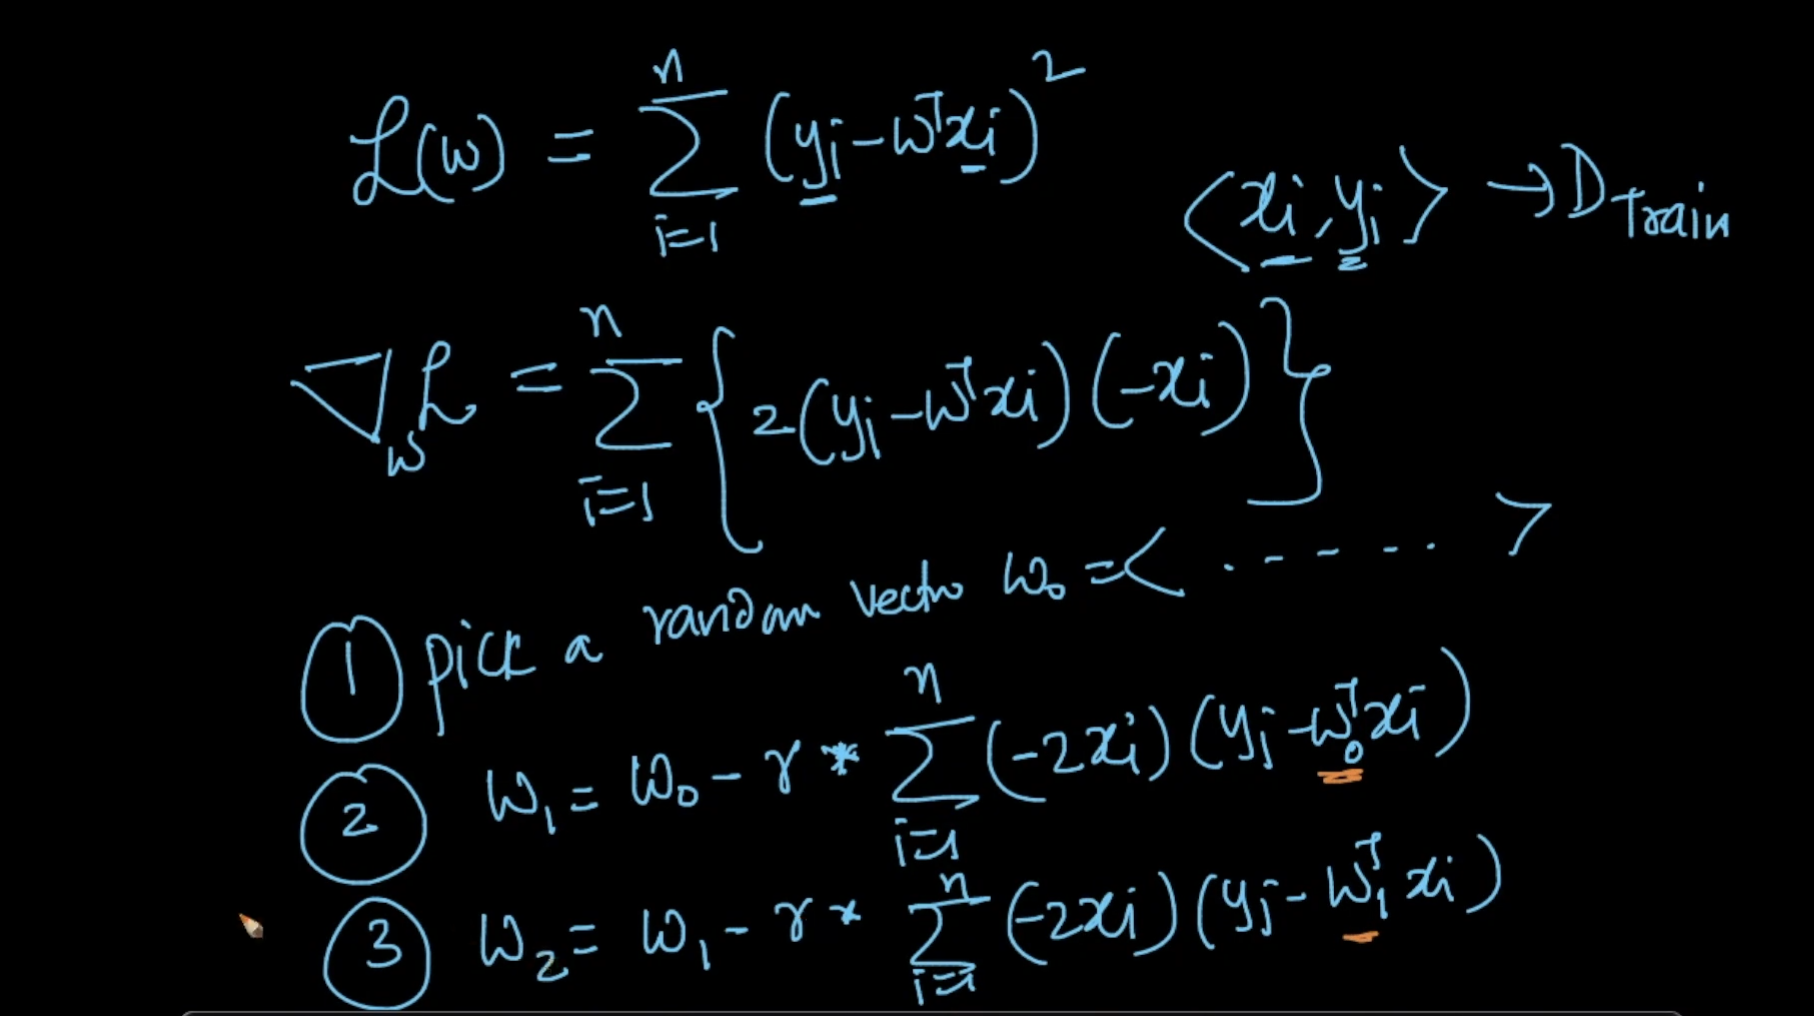 L(w) = Σ_{i=1}^{n} (yi - wᵀxi)²
<xi, yi> → D Train
∇_w L = Σ_{i=1}^{n} {2(yi - wᵀxi)(-xi)}
1 pick a random vecto w₀ = < . - - - - . >
2 w₁ = w₀ - r * Σ_{i=1}^{n} (-2xi)(yi - w₀ᵀxi)
3 w₂ = w₁ - r * Σ_{i=1}^{n} (-2xi)(yi - w₁ᵀxi)